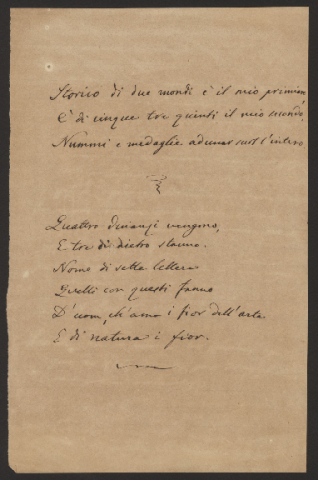 Storico di due mondi è il mio primiero
È di cinque tre quinti il mio secondo,
Nummi e medaglie adunar suol l'intero.
Quattro dinanzi vengono,
E tre di dietro stanno.
Nome di sette lettere
Quelli con questi fanno
D'uom, ch'ama i fior dell'arte
E di natura i fior.